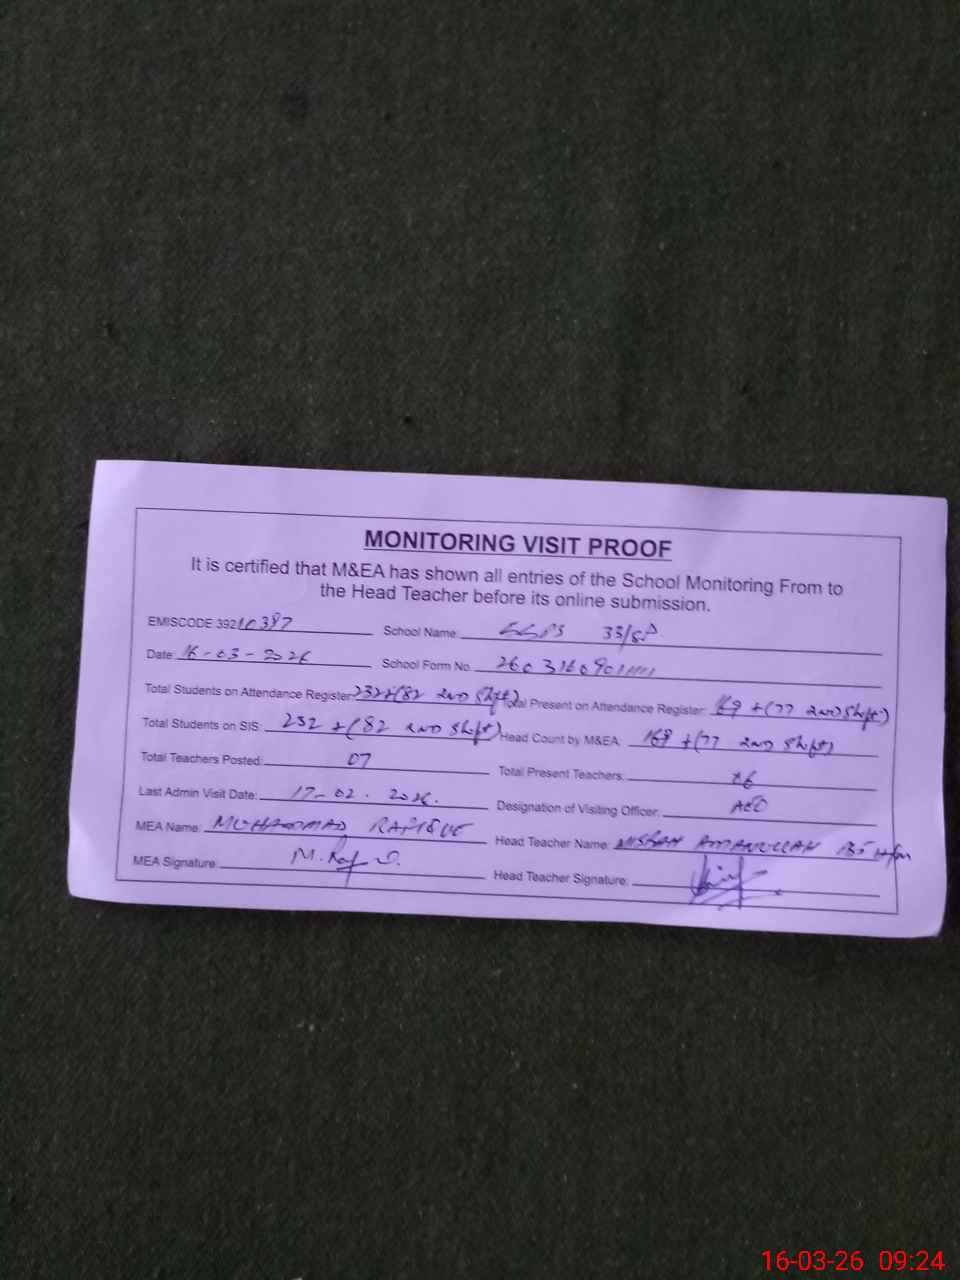 MONITORING VISIT PROOF
It is certified that M&EA has shown all entries of the School Monitoring From to
the Head Teacher before its online submission.
EMISCODE 39210387 School Name: GGPS 33/SP
Date: 16-03-2026 School Form No. 260316090
Total Students on Attendance Register: 232+(82 2nd Shift) Total Present on Attendance Register: 169 +(77 2nd Shift)
Total Students on SIS: 232 +(82 2nd Shift) Head Count by M&EA: 169 +(77 2nd Shift)
Total Teachers Posted: 07 Total Present Teachers: 06
Last Admin Visit Date: 17-02-2026. Designation of Visiting Officer: AEO
MEA Name: MUHAMMAD RAFIQUE Head Teacher Name: AMANULLAH
MEA Signature: Head Teacher Signature:
16-03-26 09:24